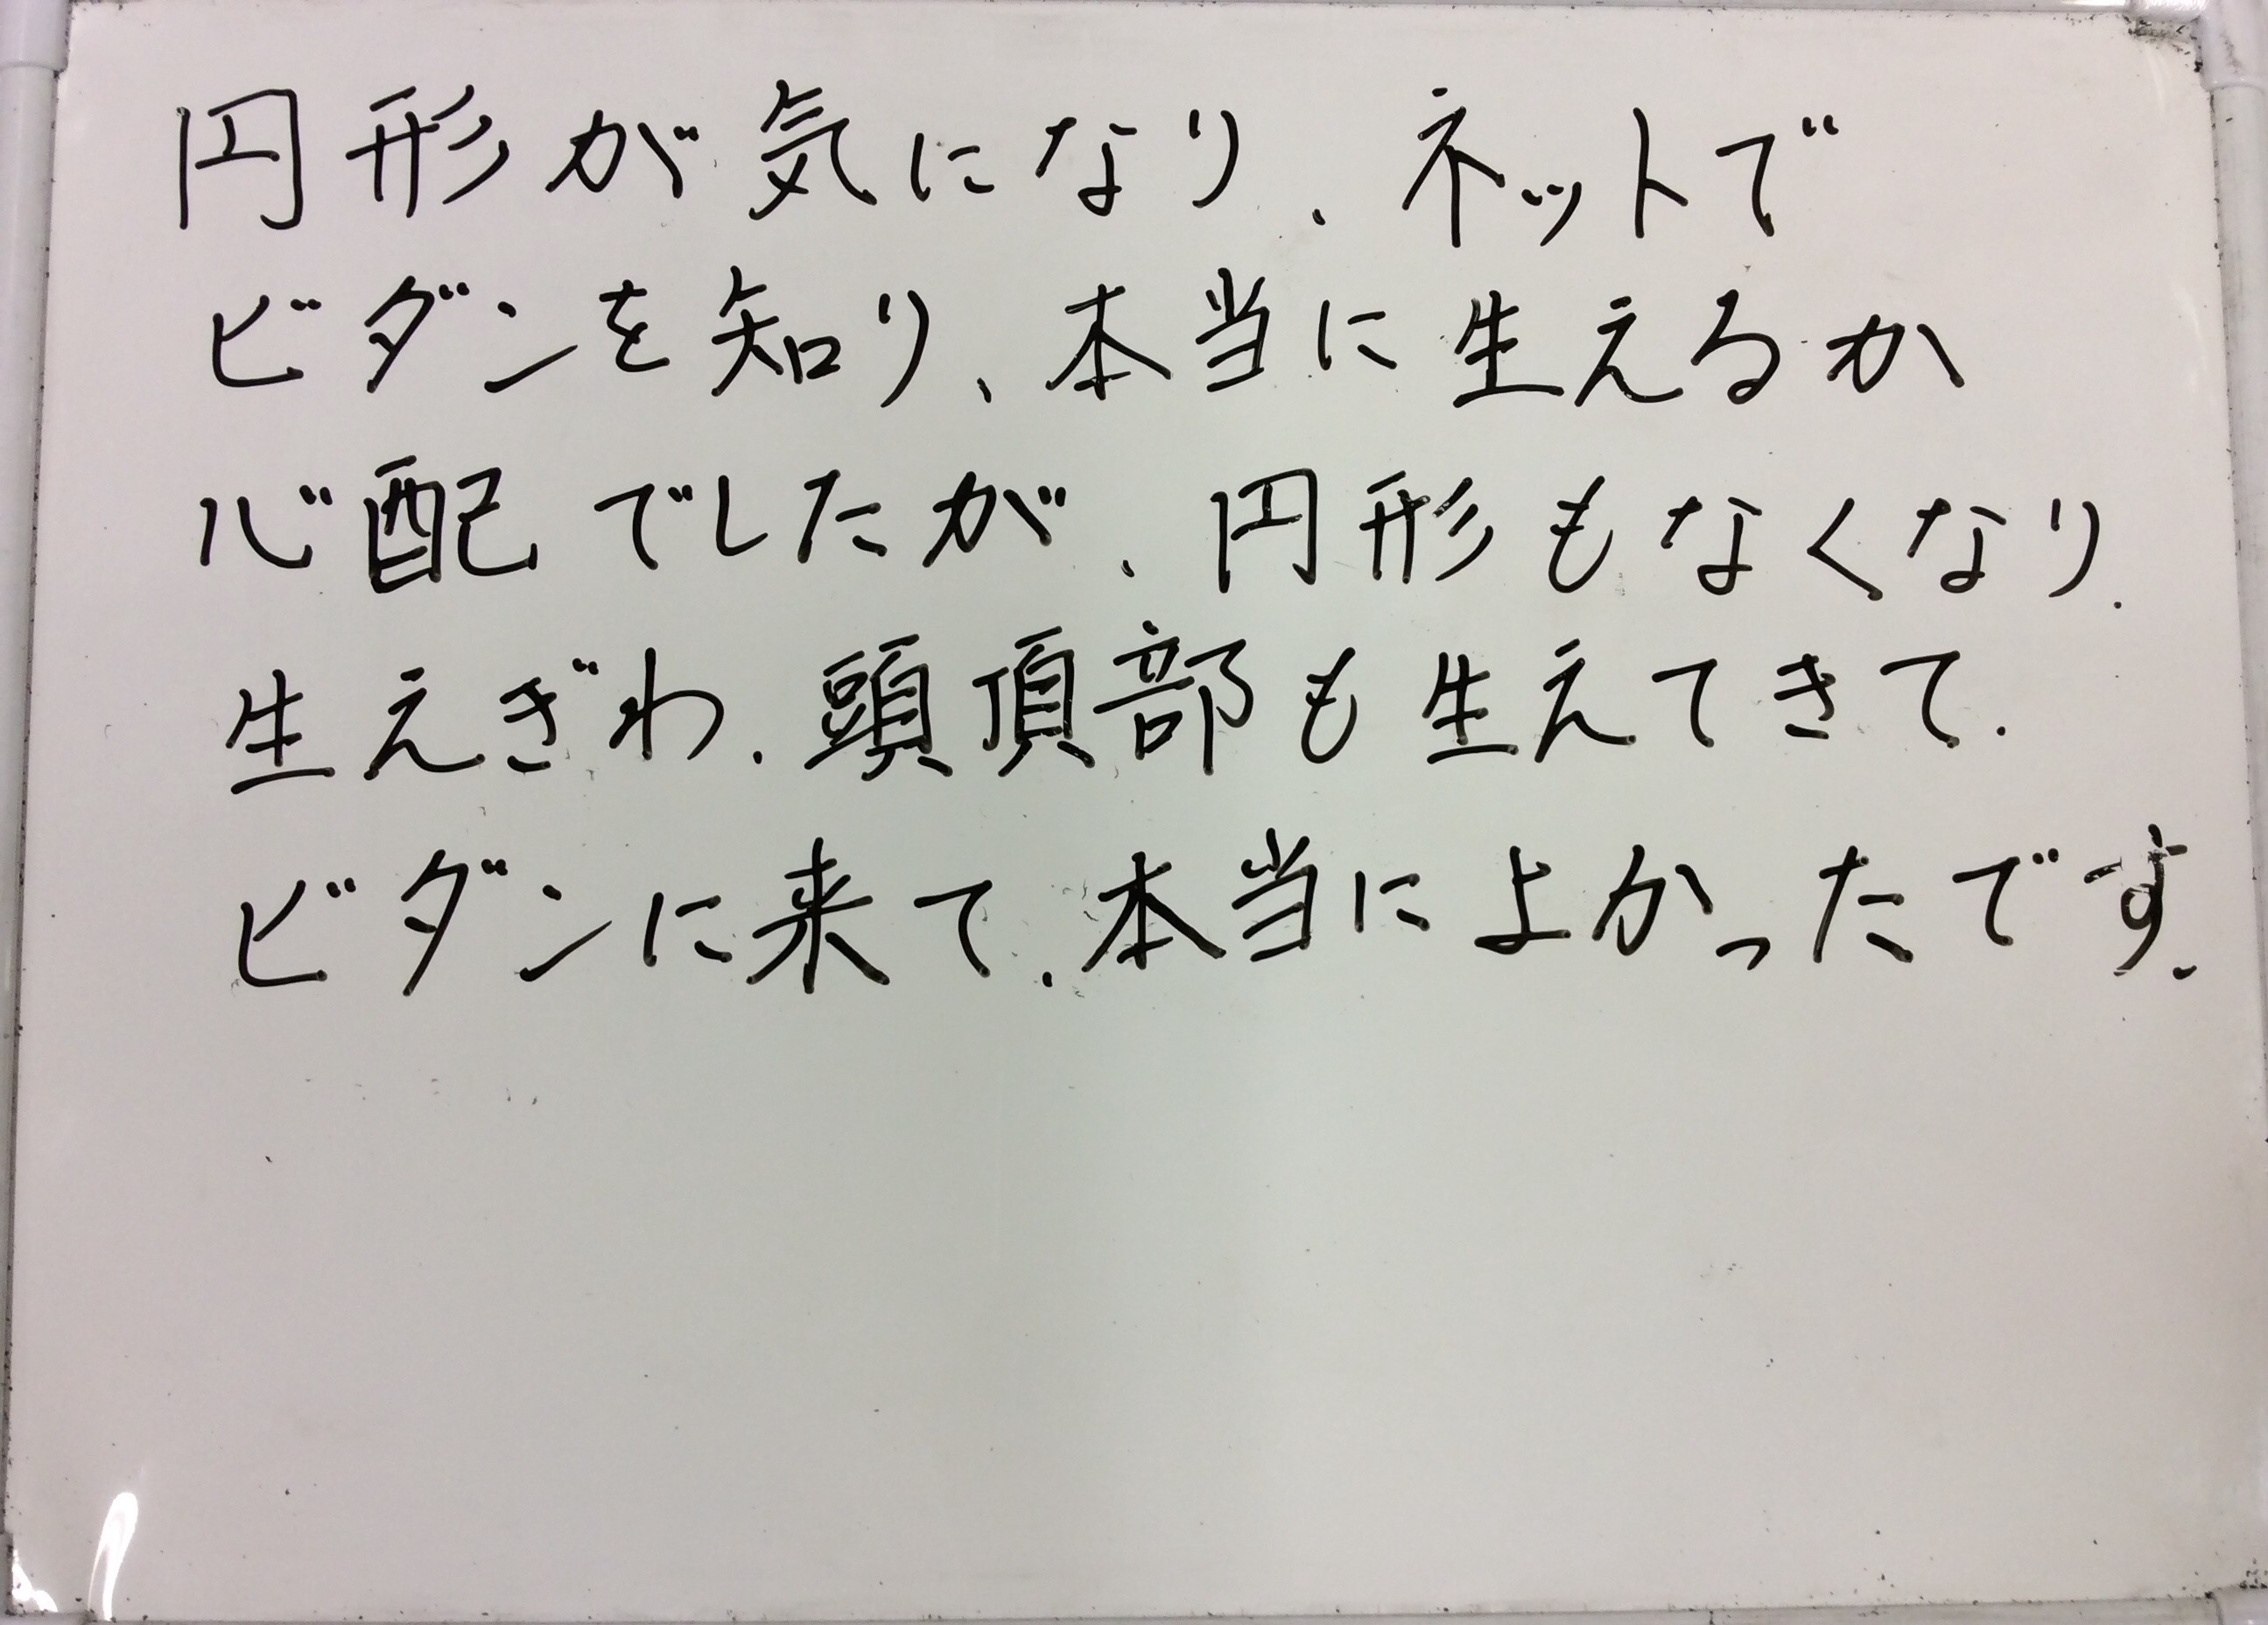 円形が気になり、ネットで
ビダンを知り、本当に生えるか
心配でしたが、円形もなくなり、
生えぎわ、頭頂部も生えてきて、
ビダンに来て、本当によかったです。